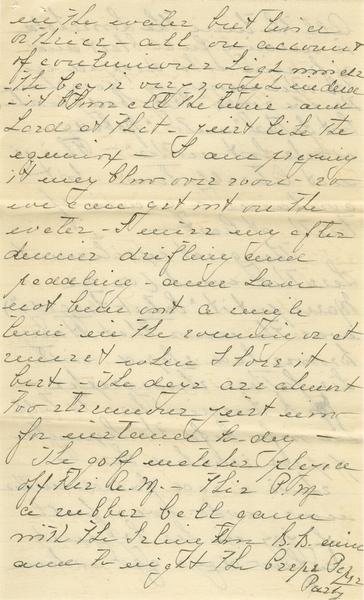 in the water but twice
or thrice - all on account
of continuous high winds
- the bay is very rough indeed
- it blows all the time - and
hard at that - just like the
equinox - I am praying
it may blow over soon - so
we can get out on the
water - I miss my after
dinner drifting and
paddling - and have
not been out a single
time in the evening or at
sunset when I love it
best - The days are almost
too strenuous just now
for instance to-day -
The golf matches played
off this A.M. - This P.M.
a rubber ball game
with the Islington B.B. nine
and to night the Crepe Paper
Party